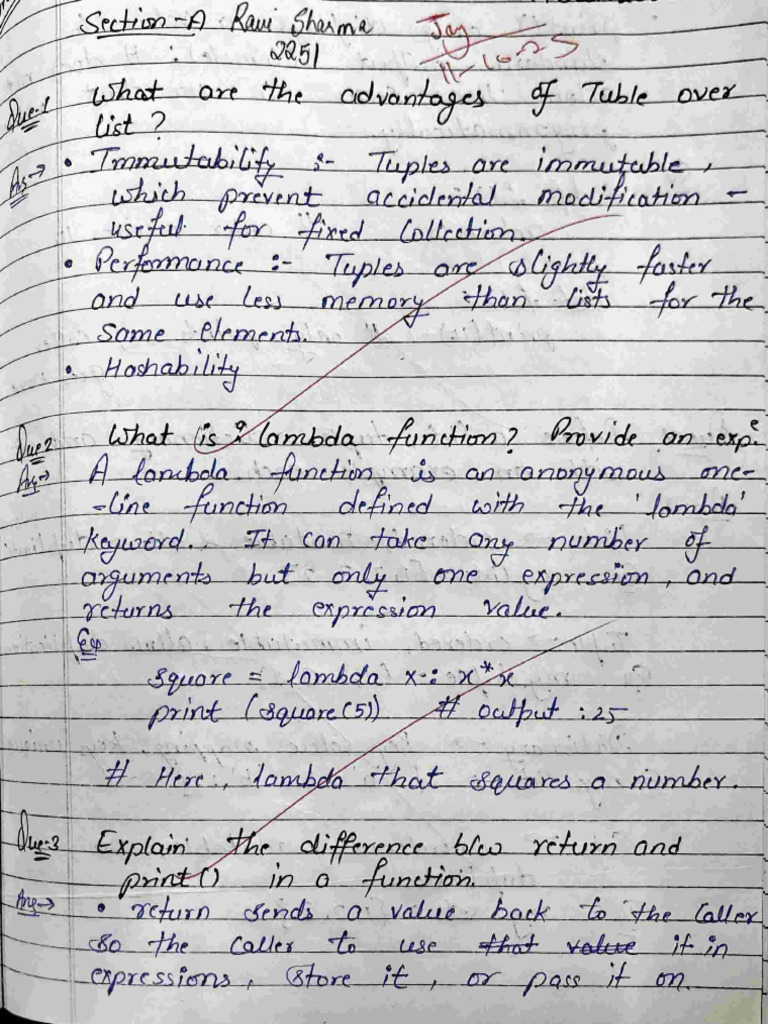 Section-A Ravi Sharma
2251
Jay
11-10-25
Que-1 What are the advantages of Tuble over
list ?
Ans→ • Immutability :- Tuples are immutable,
which prevent accidental modification -
useful for fixed Collection.
• Performance :- Tuples are slightly faster
and use less memory than lists for the
Same elements.
• Hashability
Que2 What is a lambda function? Provide an exp.
Ans→ A lambda function is an anonymous one-
-line function defined with the 'lambda'
keyword. It can take any number of
arguments but only one expression, and
returns the expression value.
Ex
square = lambda x : x*x
print (square(5)) # output : 25
# Here, lambda that squares a number.
Que-3 Explain the difference b/w return and
print() in a function.
Ans→ • return sends a value back to the Caller
so the Caller to use that value it in
expressions, store it, or pass it on.